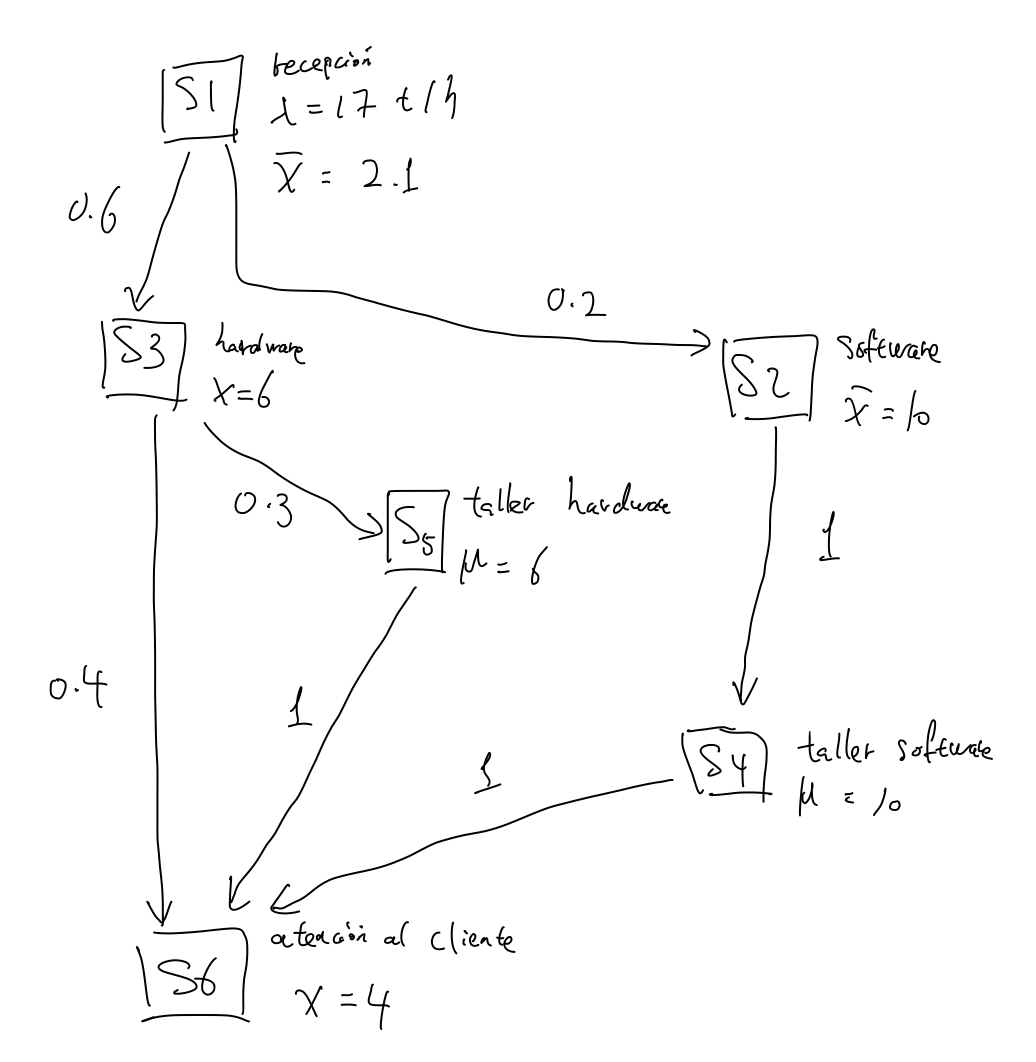 S1
recepción
λ = 17 t/h
x̄ = 2.1
0.6
0.2
S3
hardware
x=6
S2
software
x̄ = 10
0.3
S5
taller hardware
μ = 6
1
0.4
1
1
S4
taller software
μ = 10
S6
atención al cliente
x = 4